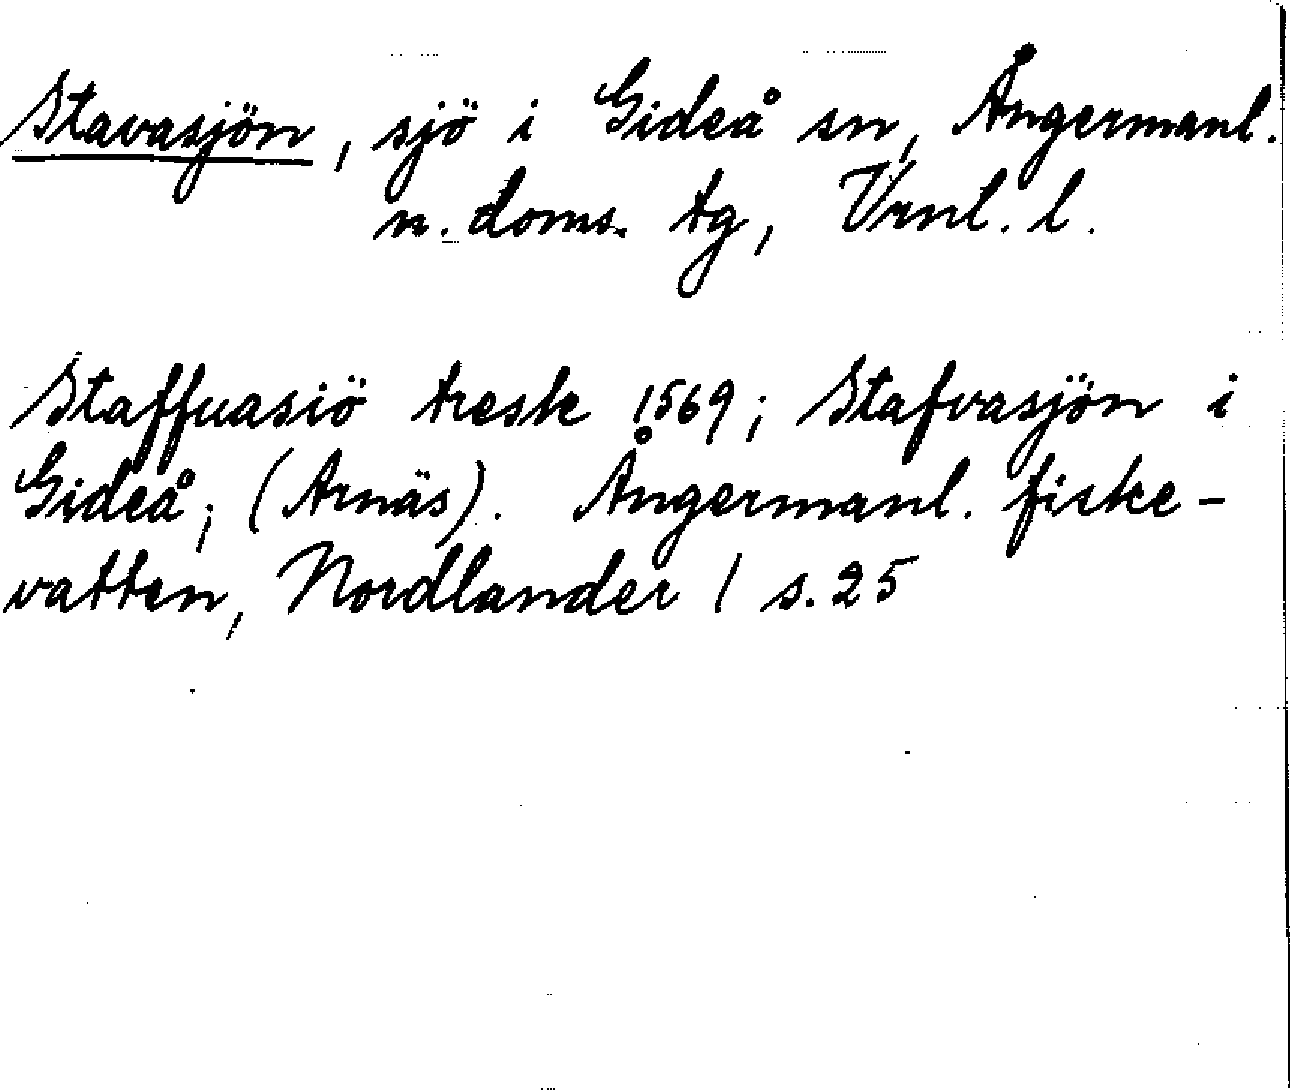 Stavasjön, sjö i Gideå sn, Ångermanl.
n. doms. tg, Vrnl. l.
Staffuasiö tresk 1569; Stafvasjön i
Gideå; (Arnäs). Ångermanl. fiske-
vatten, Nordlander / s. 25